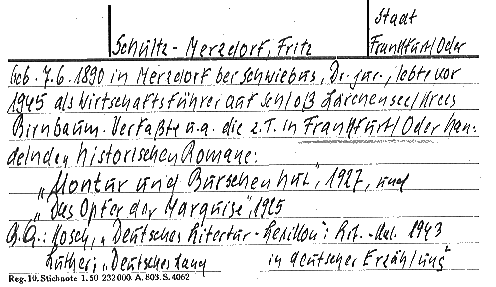 Staat
Schultz-Merzdorf, Fritz Frankfurt/Oder
Geb. 7.6.1890 in Merzdorf bei Schwiebus, Dr. jur., lebte vor
1945 als Wirtschaftsführer auf Schloß Lärchensee/Kreis
Birnbaum. Verfaßte u.a. die z.T. in Frankfurt/Oder han-
delnden historischen Romane:
"Montur und Burschenhut", 1927, und
"Das Opfer der Marquise", 1925
B.Q.: Kosch, "Deutsches Litertur-Lexikon": 1943
Luther, "Deutsches Land in deutscher Erzählung"
Reg. 19. Stichnote 1. 50 232 000. A. 803. S. 4062